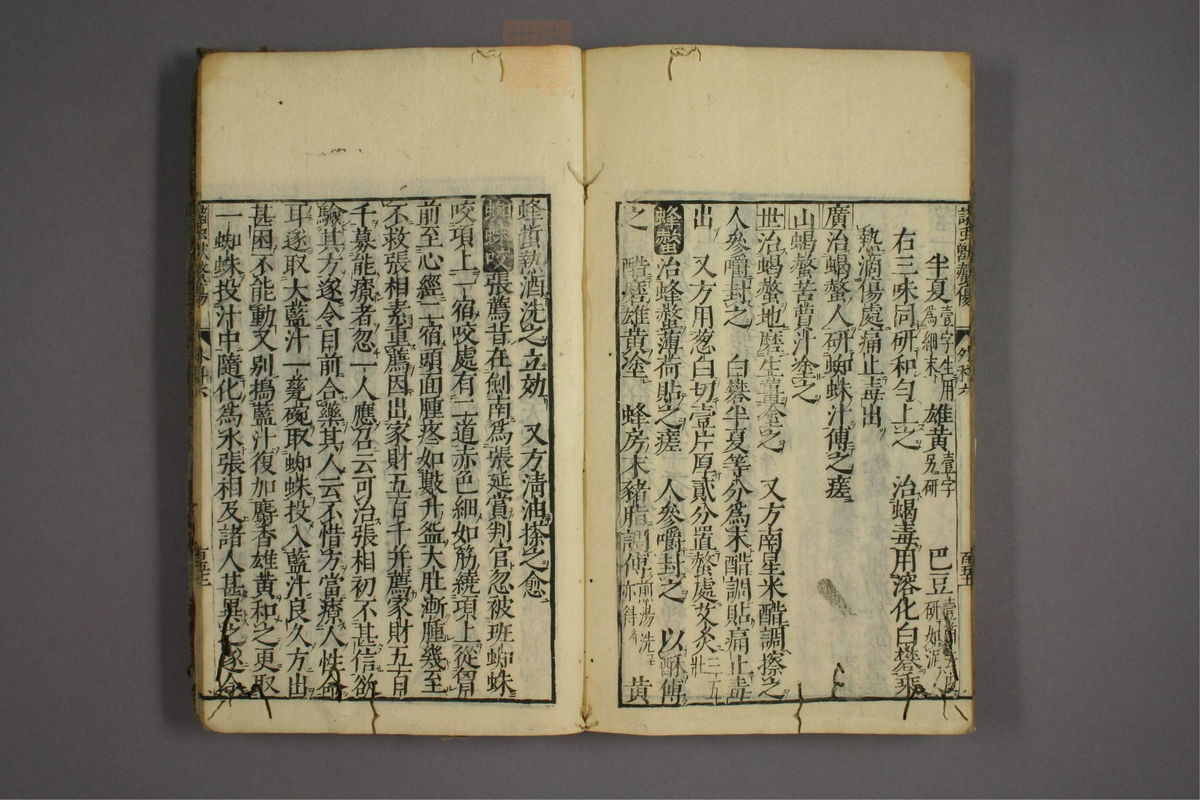 半夏壹字生用為細末 雄黃壹字另研 巴豆
右三味同研和勻上之 治蝎毒用溶化白礬乘
熱滴傷處痛止毒出
廣治蝎螫人研蜘蛛汁傅之瘥
山蝎螫苦蕒汁塗之
世治蝎螫地磨生薑塗之 又方南星米醋調擦之
人參嚼封之 白礬半夏等分為末醋調貼痛止毒
出 又方用葱白切壹片厚貳分置螫處艾灸三五壯
蜂螫治蜂螫薄荷貼之瘥 人參嚼封之 以酥傅
之 醋磨雄黃塗 蜂房末豬脂調傅煎湯洗亦得 黃
蜂蜇熱酒洗之立効 又方清油搽之愈
蜘蛛咬張薦昔在劍南為張延賞判官忽被班蜘蛛
咬項上一宿咬處有二道赤色細如筋繞項上從胷
前至心經二宿頭面腫疼如數升盌大肚漸腫幾至
不救張相素重薦因出家財五百千并薦家財五百
千募能療者忽一人應召云可治張相初不甚信欲
驗其方遂令目前合藥其人云不惜方當療人性命
耳遂取大藍汁一甆碗取蜘蛛投入藍汁良久方出
甚困不能動又別搗藍汁復加麝香雄黃和之更取
一蜘蛛投汁中隨化為水張相及諸人甚異之遂令